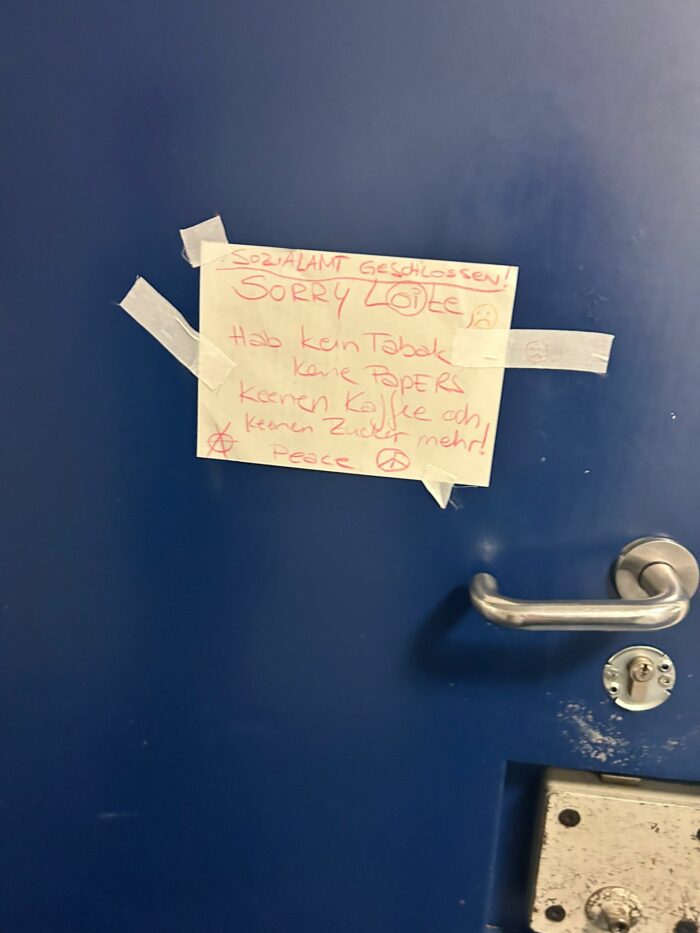 SOZIALAMT GESCHLOSSEN!
SORRY LOite,
Hab kein Tabak
keine PAPERS
keenen Kaffee och
keenen Zucker mehr!
Peace